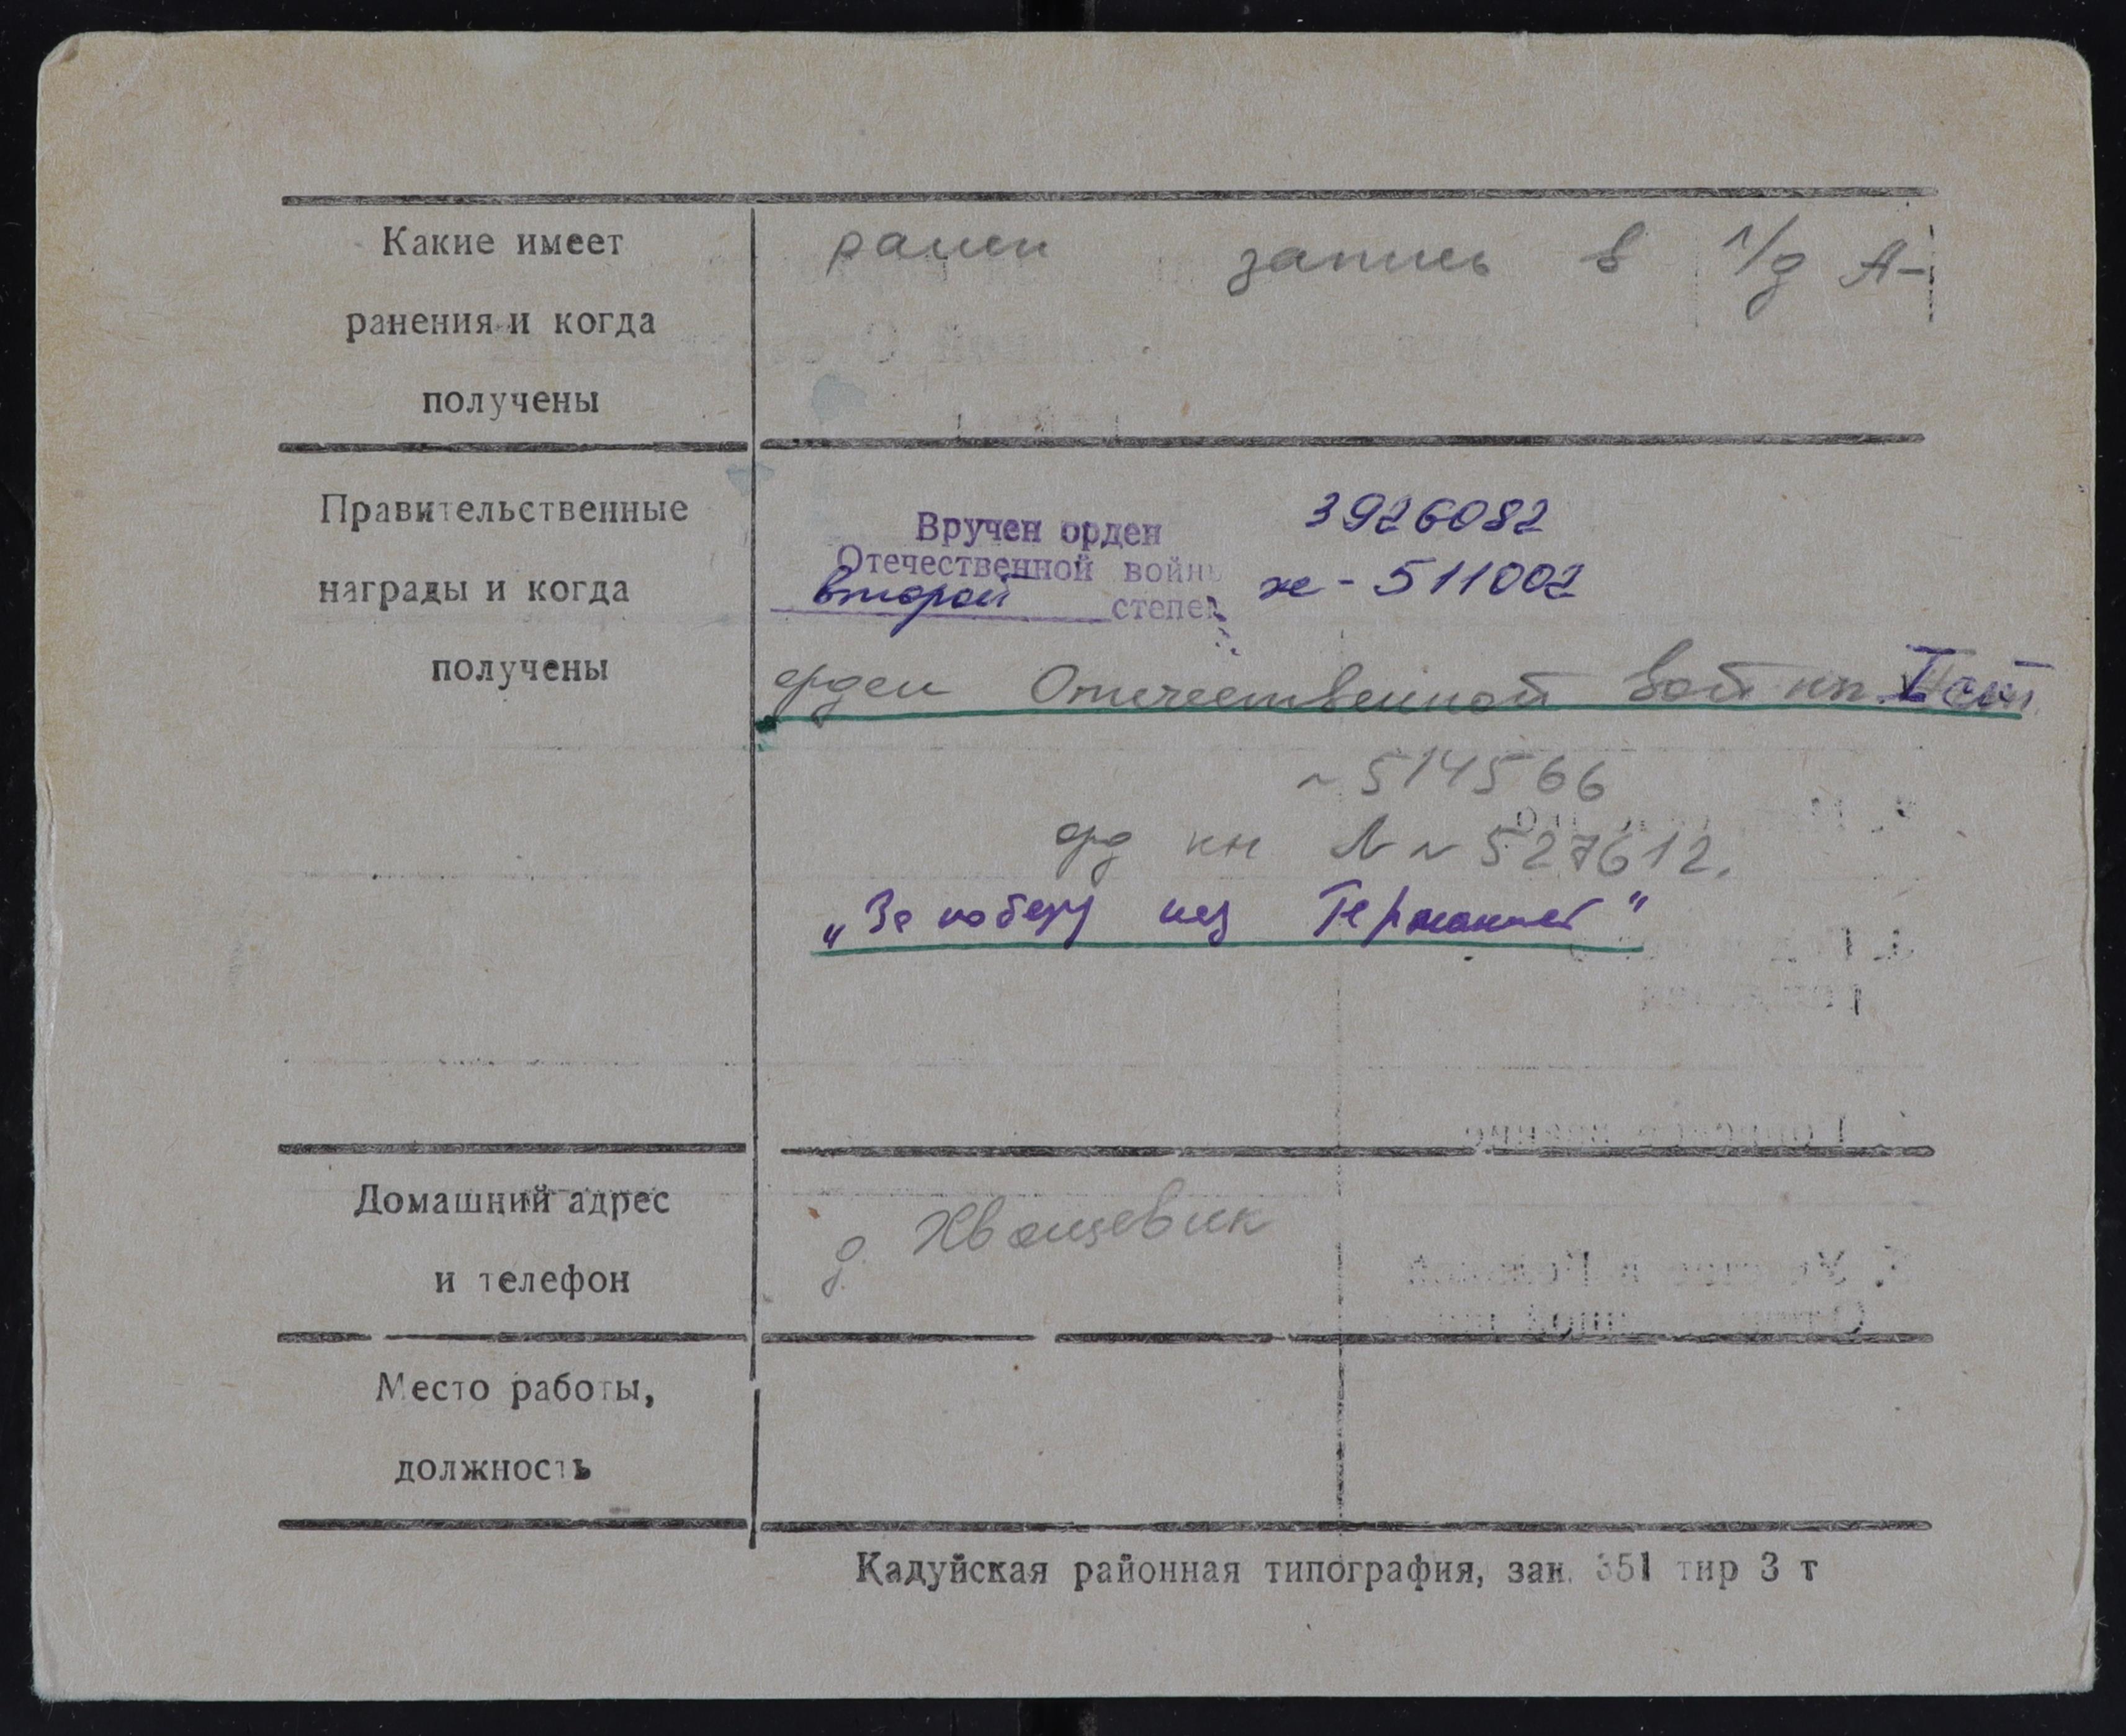 Какие имеет
ранения и когда
получены
ранен запись в л/д А-
Правительственные
награды и когда
получены
Вручен орден 3926082
Отечественной войны
второй степени ж-511002
орден Отечественной войны I ст
~514566
орд кн № ~527612.
„За победу над Германией"
Домашний адрес
и телефон
д. Хвощевик
Место работы,
должность
Кадуйская районная типография, зак. 351 тир 3 т